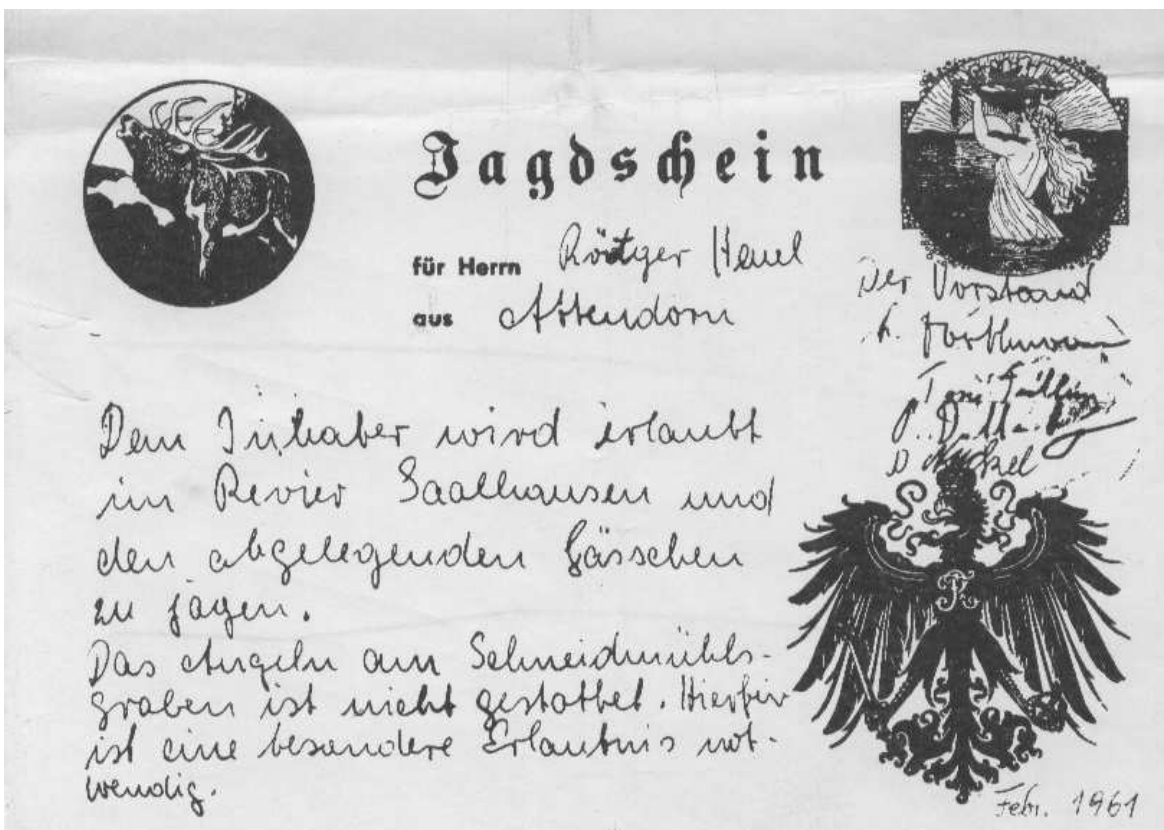 Jagdschein
für Herrn Rötger Heuel
aus Attendorn
Der Vorstand
Dem Inhaber wird erlaubt
im Revier Saalhausen und
den abgelegenden Gässchen
zu jagen.
Das Angeln am Schneidmühls-
graben ist nicht gestattet. Hierfür
ist eine besondere Erlaubnis not-
wendig.
Febr. 1961